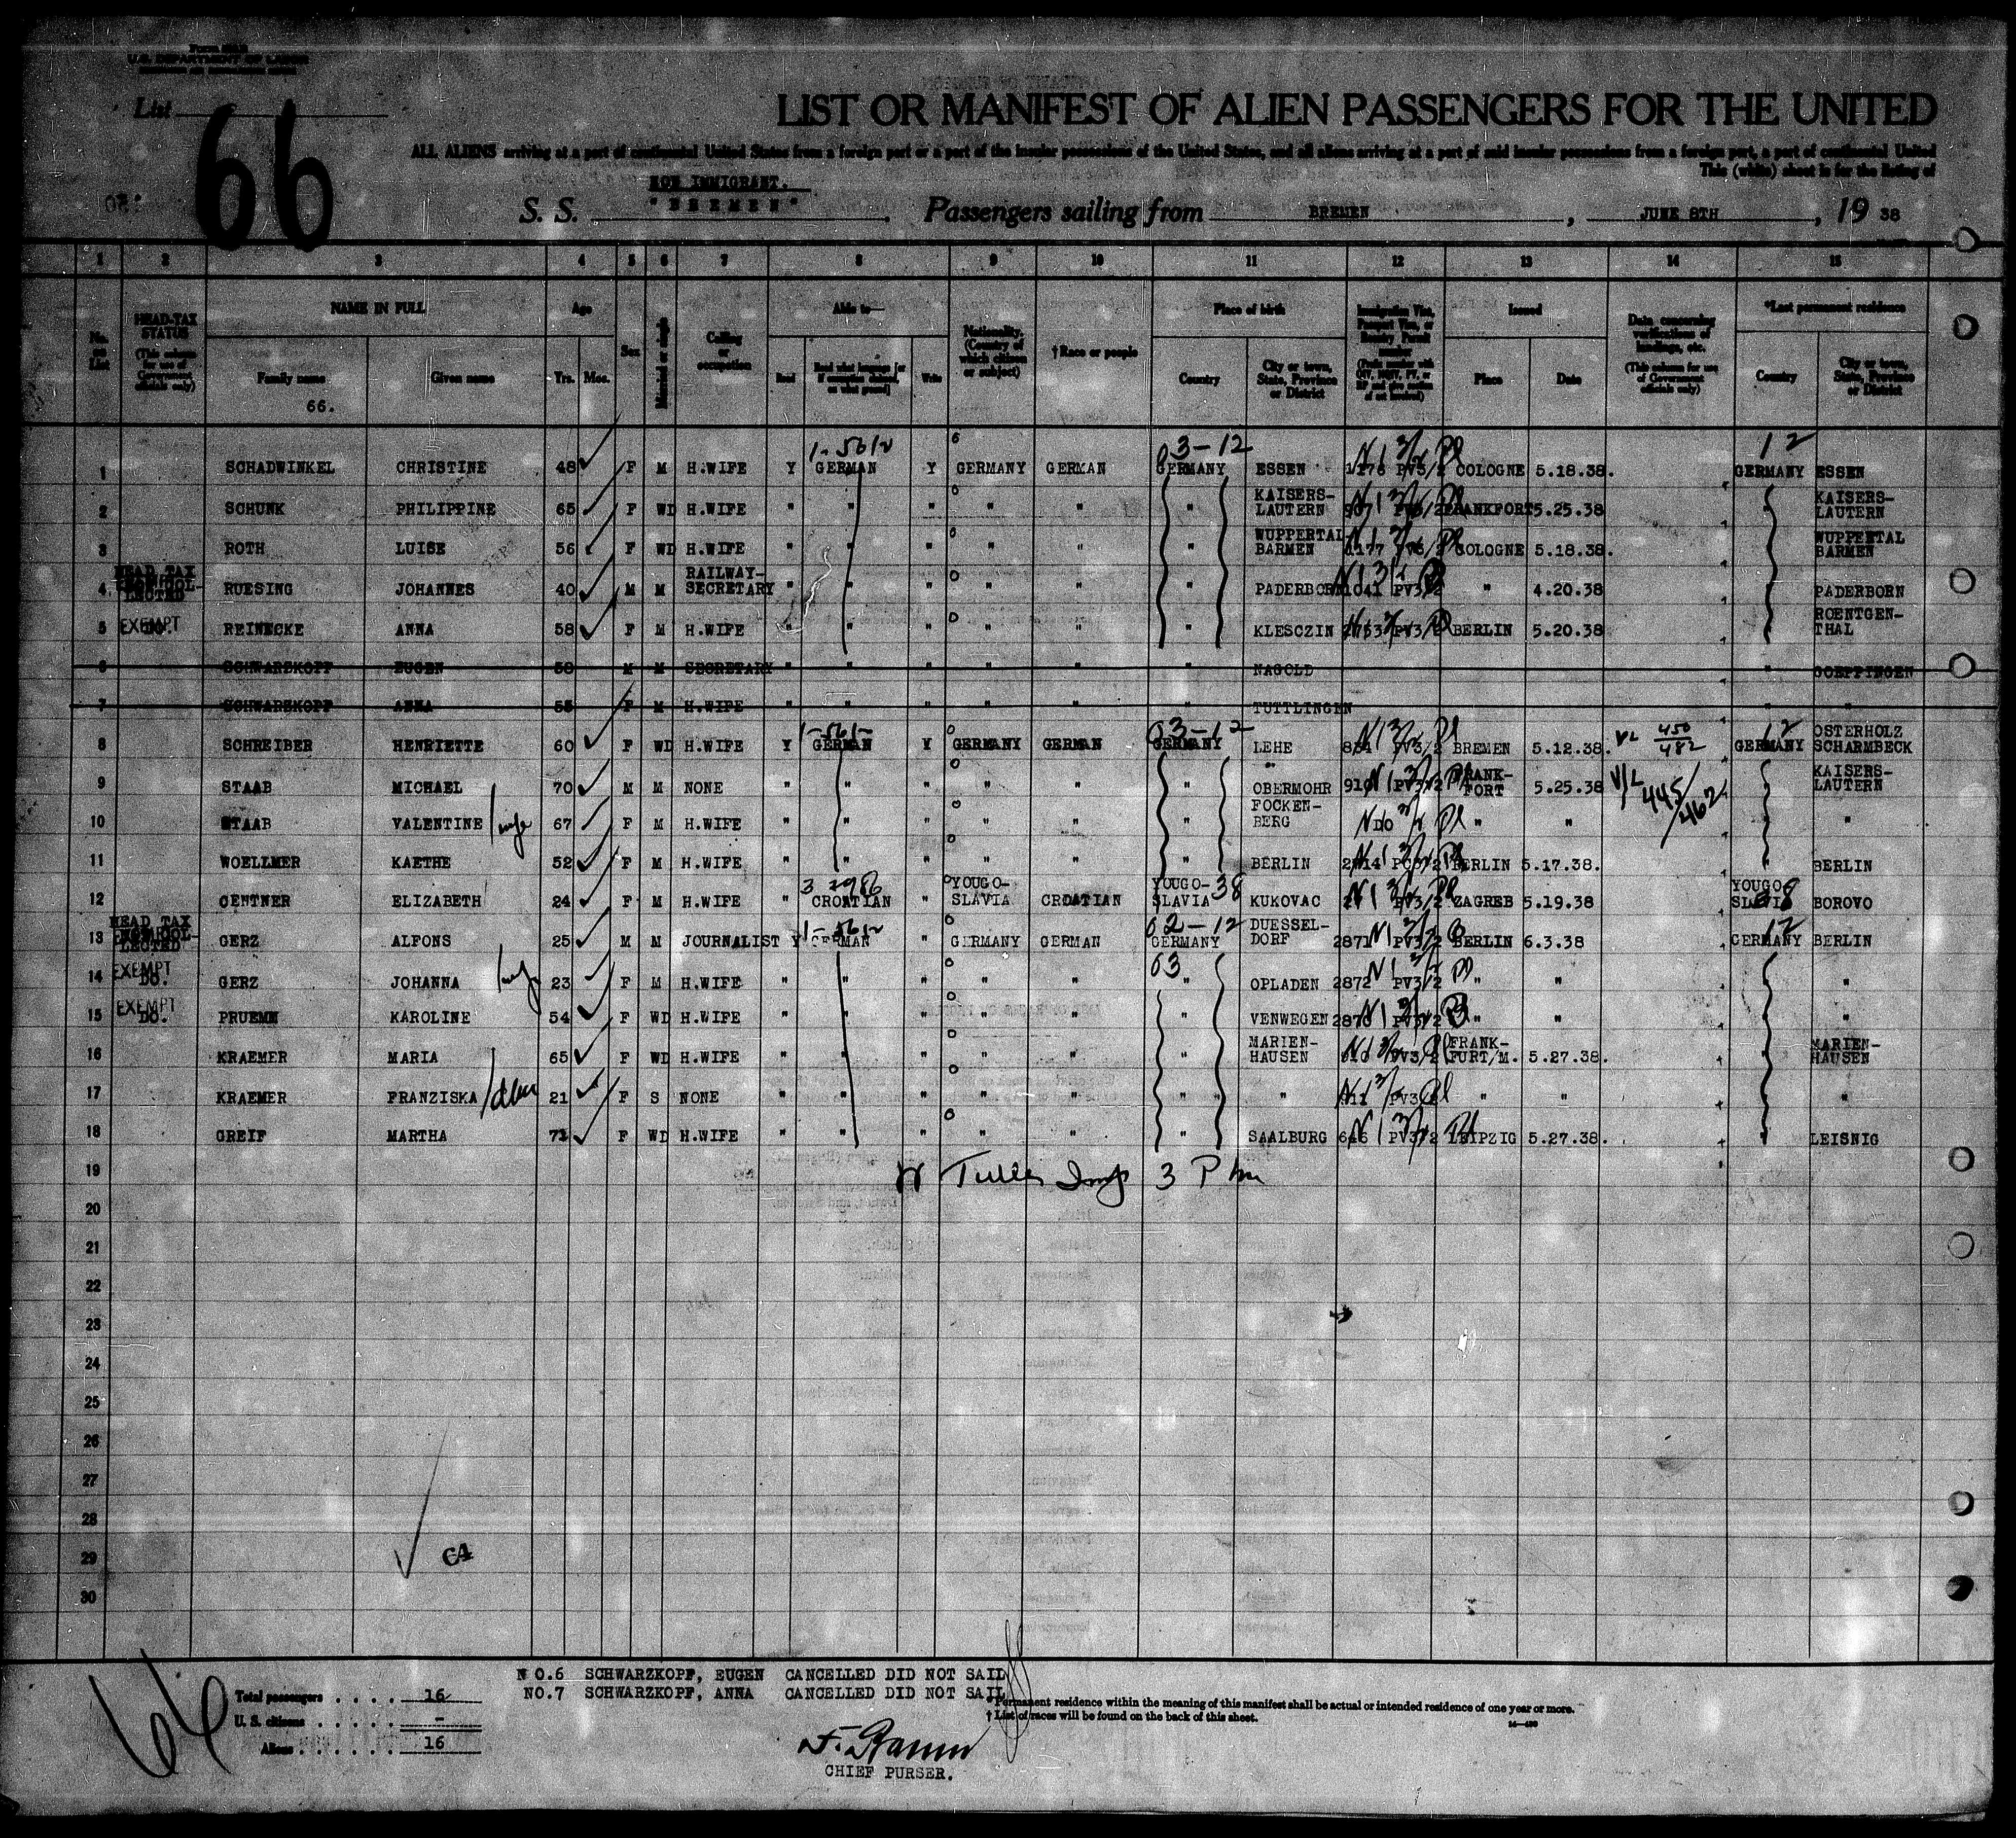 U.S. DEPARTMENT OF LABOR
List
66
LIST OR MANIFEST OF ALIEN PASSENGERS FOR THE UNITED
ALL ALIENS arriving at a port of continental United States from a foreign port or a port of the insular possessions of the United States, and all aliens arriving at a port of said insular possessions from a foreign port, a port of continental United
This (white) sheet is for the listing of
NON IMMIGRANT.
S. S. "BREMEN" Passengers sailing from BREMEN, JUNE 8TH, 19 38
1 2 3 4 5 6 7 8 9 10 11 12 13 14 15
No. on List
HEAD-TAX STATUS (This column for use of Government officials only)
NAME IN FULL Family name Given name
66.
Age Yrs. Mos.
Sex
Married or single
Calling or occupation
Able to— Read Read what language [or if exemption claimed, on what ground] Write
Nationality. (Country of which citizen or subject)
†Race or people
Place of birth Country City or town, State, Province or District
Immigration Visa, Passport Visa, or Reentry Permit number
Issued Place Date
Data concerning verifications of landings, etc. (This column for use of Government officials only)
*Last permanent residence Country City or town, State, Province or District
1-5612 03-12 12
1 SCHADWINKEL CHRISTINE 48 F M H.WIFE Y GERMAN Y GERMANY GERMAN GERMANY ESSEN 1176 PV3/2 COLOGNE 5.18.38. GERMANY ESSEN
2 SCHUNK PHILIPPINE 65 F WD H.WIFE " " " " " " KAISERS-LAUTERN 907 PV3/2 FRANKFORT 5.25.38 KAISERS-LAUTERN
3 ROTH LUISE 56 F WD H.WIFE " " " " " " WUPPERTAL BARMEN 1177 PV3/2 COLOGNE 5.18.38. WUPPETAL BARMEN
4 HEAD TAX RUESING JOHANNES 40 M M RAILWAY-SECRETARY " " " " " " PADERBORN 1041 PV3/2 " 4.20.38 PADERBORN
5 EXEMPT DO. REINECKE ANNA 58 F M H.WIFE " " " " " " KLESCZIN PV3/2 BERLIN 5.20.38 ROENTGEN-THAL
6 SCHWARZKOPF EUGEN 58 M M SECRETARY " " " " " " NAGOLD " GOEPPINGEN
7 SCHWARZKOPF ANNA 55 F M H.WIFE TUTTLINGEN " "
8 SCHREIBER HENRIETTE 60 F WD H.WIFE Y GERMAN Y GERMANY GERMAN GERMANY LEHE PV3/2 BREMEN 5.12.38. VL 450/482 GERMANY OSTERHOLZ SCHARMBECK
9 STAAB MICHAEL 70 M M NONE " " " " " " OBERMOHR 910 PV3/2 FRANK-FORT 5.25.38 V/L 445/462 KAISERS-LAUTERN
10 STAAB VALENTINE wife 67 F M H.WIFE " " " " " " FOCKEN-BERG " " "
11 WOELLMER KAETHE 52 F M H.WIFE " " " " " " BERLIN BERLIN 5.17.38. " BERLIN
12 CENTNER ELIZABETH 24 F M H.WIFE " CROATIAN " YOUGO-SLAVIA CROATIAN YOUGO-SLAVIA 38 KUKOVAC PV3/2 ZAGREB 5.19.38 YOUGO-SLAVIA BOROVO
13 HEAD TAX GERZ ALFONS 25 M M JOURNALIST Y GERMAN " GERMANY GERMAN 02-12 GERMANY DUESSEL-DORF 2871 PV3/2 BERLIN 6.3.38 12 GERMANY BERLIN
14 EXEMPT DO. GERZ JOHANNA wife 23 F M H.WIFE " " " " " 03 " OPLADEN 2872 PV3/2 " " "
15 EXEMPT DO. PRUEMM KAROLINE 54 F WD H.WIFE " " " " " " VENWEGEN 2870 PV3/2 " " "
16 KRAEMER MARIA 65 F WD H.WIFE " " " " " " MARIEN-HAUSEN PV3/2 FRANK-FURT/M. 5.27.38. " MARIEN-HAUSEN
17 KRAEMER FRANZISKA 21 F S NONE " " " " " " " 911 PV3/2 " " " "
18 GREIF MARTHA 73 F WD H.WIFE " " " " " " SAALBURG 646 PV3/2 LEIPZIG 5.27.38. " LEISNIG
19
20
21
22
23
24
25
26
27
28
29
30
NO.6 SCHWARZKOPF, EUGEN CANCELLED DID NOT SAIL
NO.7 SCHWARZKOPF, ANNA CANCELLED DID NOT SAIL
Total passengers . . . . 16
U. S. citizens . . . . . –
Aliens . . . . . . 16
* Permanent residence within the meaning of this manifest shall be actual or intended residence of one year or more.
† List of races will be found on the back of this sheet.
CHIEF PURSER.